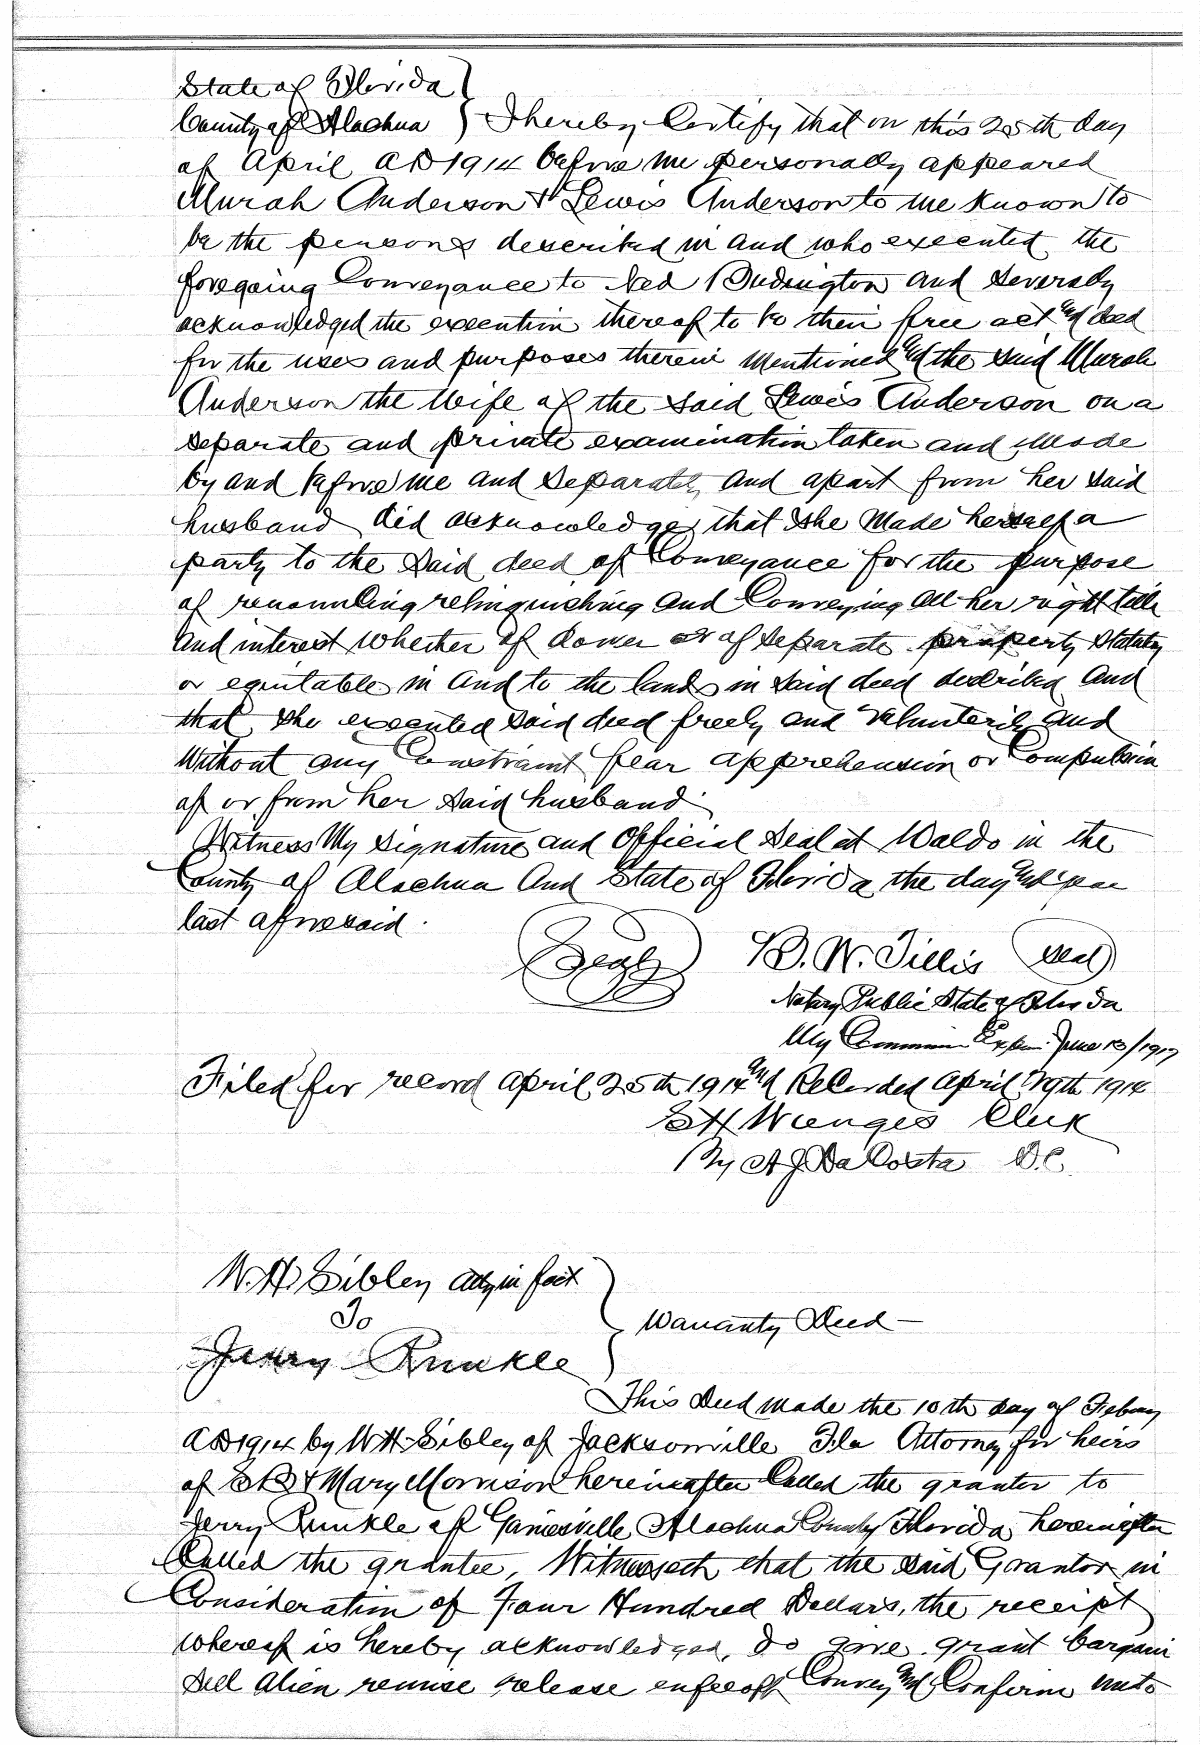 State of Florida
County of Alachua } I hereby Certify that on this 25th day
of April AD 1914 before me personally appeared
Murah Anderson & Lewis Anderson to me Known to
be the persons described in and who executed the
foregoing Conveyance to Ned Budington and severady
acknowledged the execution thereof to be their free act and deed
for the uses and purposes therein mentioned and the said Murah
Anderson the Wife of the said Lewis Anderson on a
separate and private examination taken and Made
by and before me and separately and apart from her said
husband did acknowledge that she Made herself a
party to the said deed of Conveyance for the purpose
of renouncing relinquishing and Conveying all her right title
and interest whether of dower or of separate property statutory
or equitable in and to the lands in said deed described and
that she executed said deed freely and volunterily and
Without any Constraint fear apprehension or Compulsion
of or from her said husband
Witness My signature and Official Seal at Waldo in the
County of Alachua and State of Florida the day and year
last aforesaid.
Seal B. W. Tillis Seal
Notary Public State of Florida
My Commission Expires June 13/1917
Filed for record April 25th 1914 and Recorded April 29th 1914
S H Wienges Clerk
By A J Da Costa D.C.
W. H. Sibley Atty in fact
To } Warranty Deed
Jerry Runkle
This Deed made the 10th day of Febuary
AD 1914 by W H Sibley of Jacksonville Fla Attorney for heirs
of & Mary Morrison hereinafter Called the grantor to
Jerry Runkle of Gainesville, Alachua County Florida, hereinafter
Called the grantee, Witnesseth that the said Grantor in
Consideration of Four Hundred Dollars, the receipt
whereof is hereby acknowledged, do give grant bargain
sell alien remise release enfeoff Convey and Confirm unto